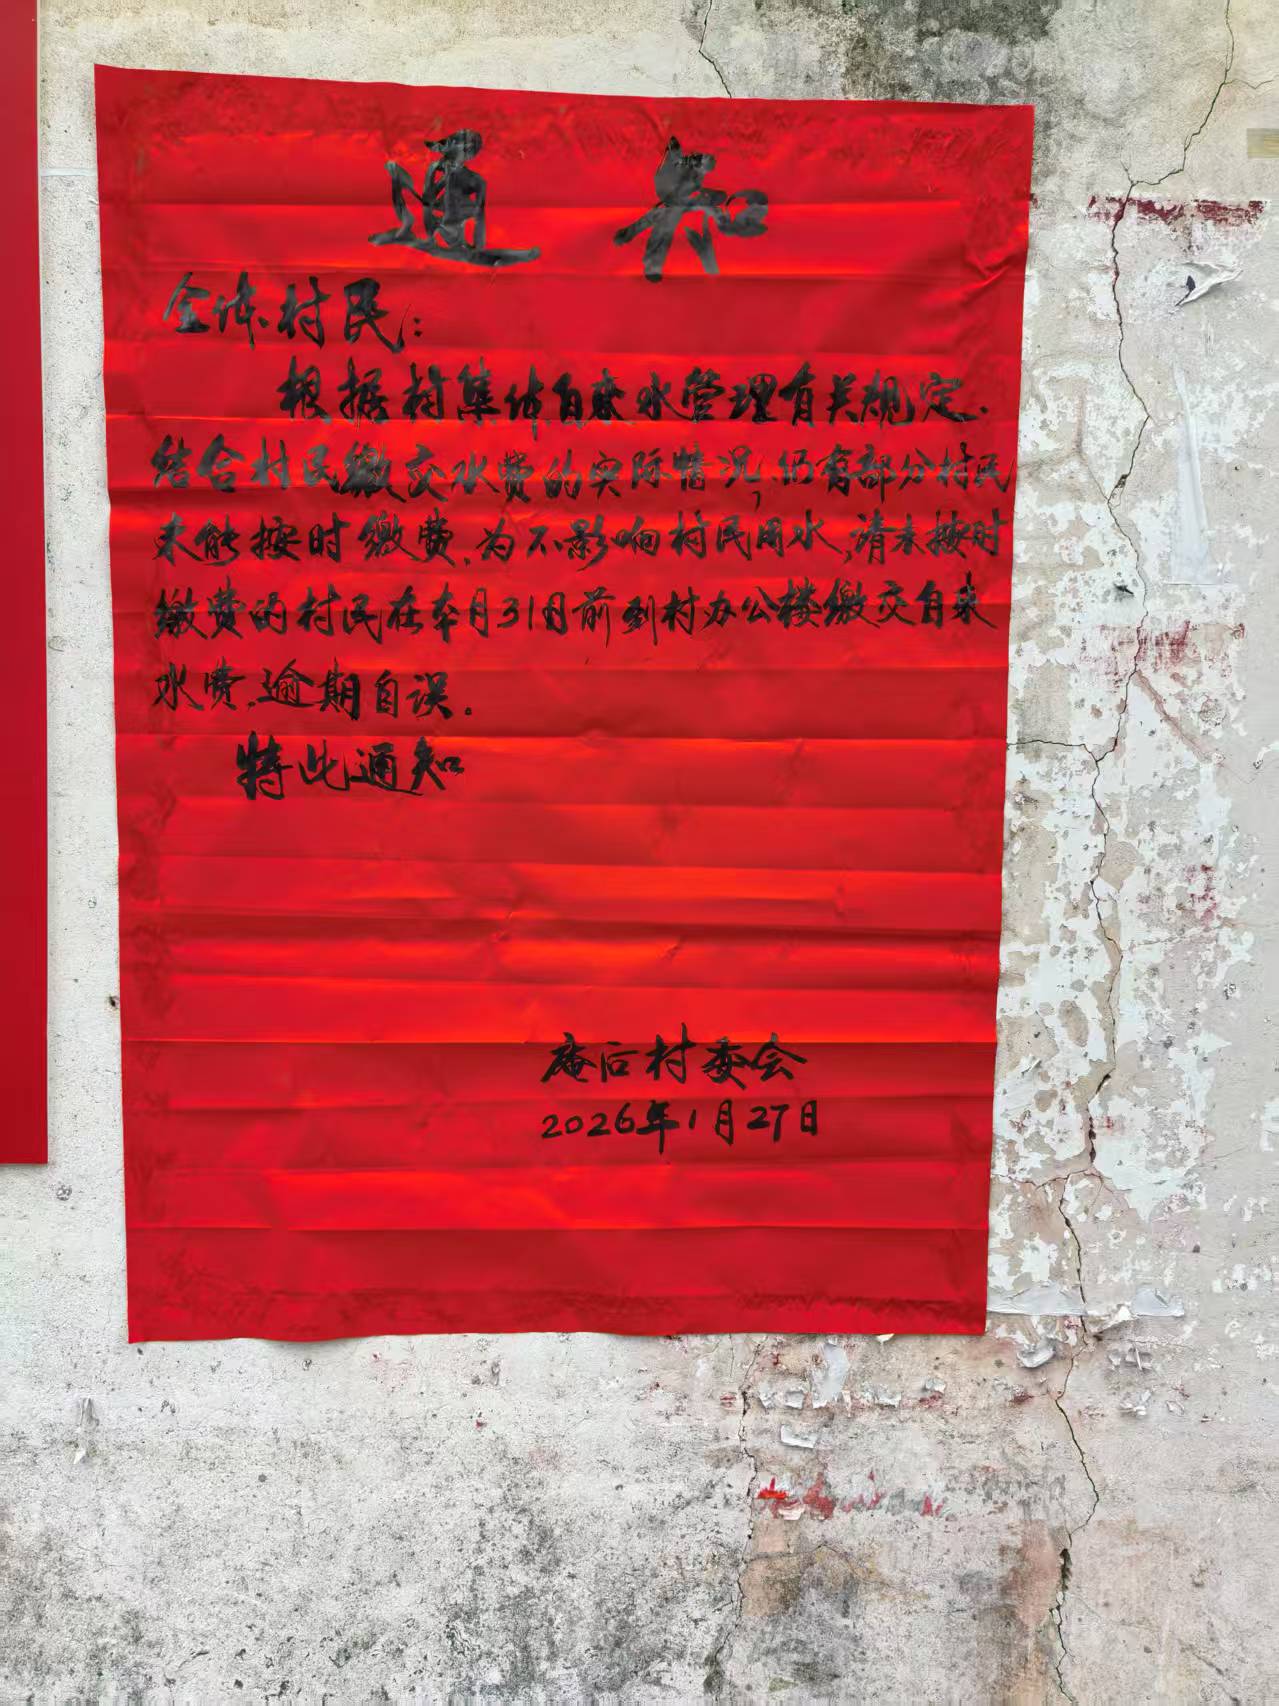 通知
全体村民：
根据村集体自来水管理有关规定，
结合村民缴交水费的实际情况，仍有部分村民
未能按时缴费，为不影响村民用水，请未按时
缴费的村民在本月31日前到村办公楼缴交自来
水费，逾期自误。
特此通知
庵后村委会
2026年1月27日